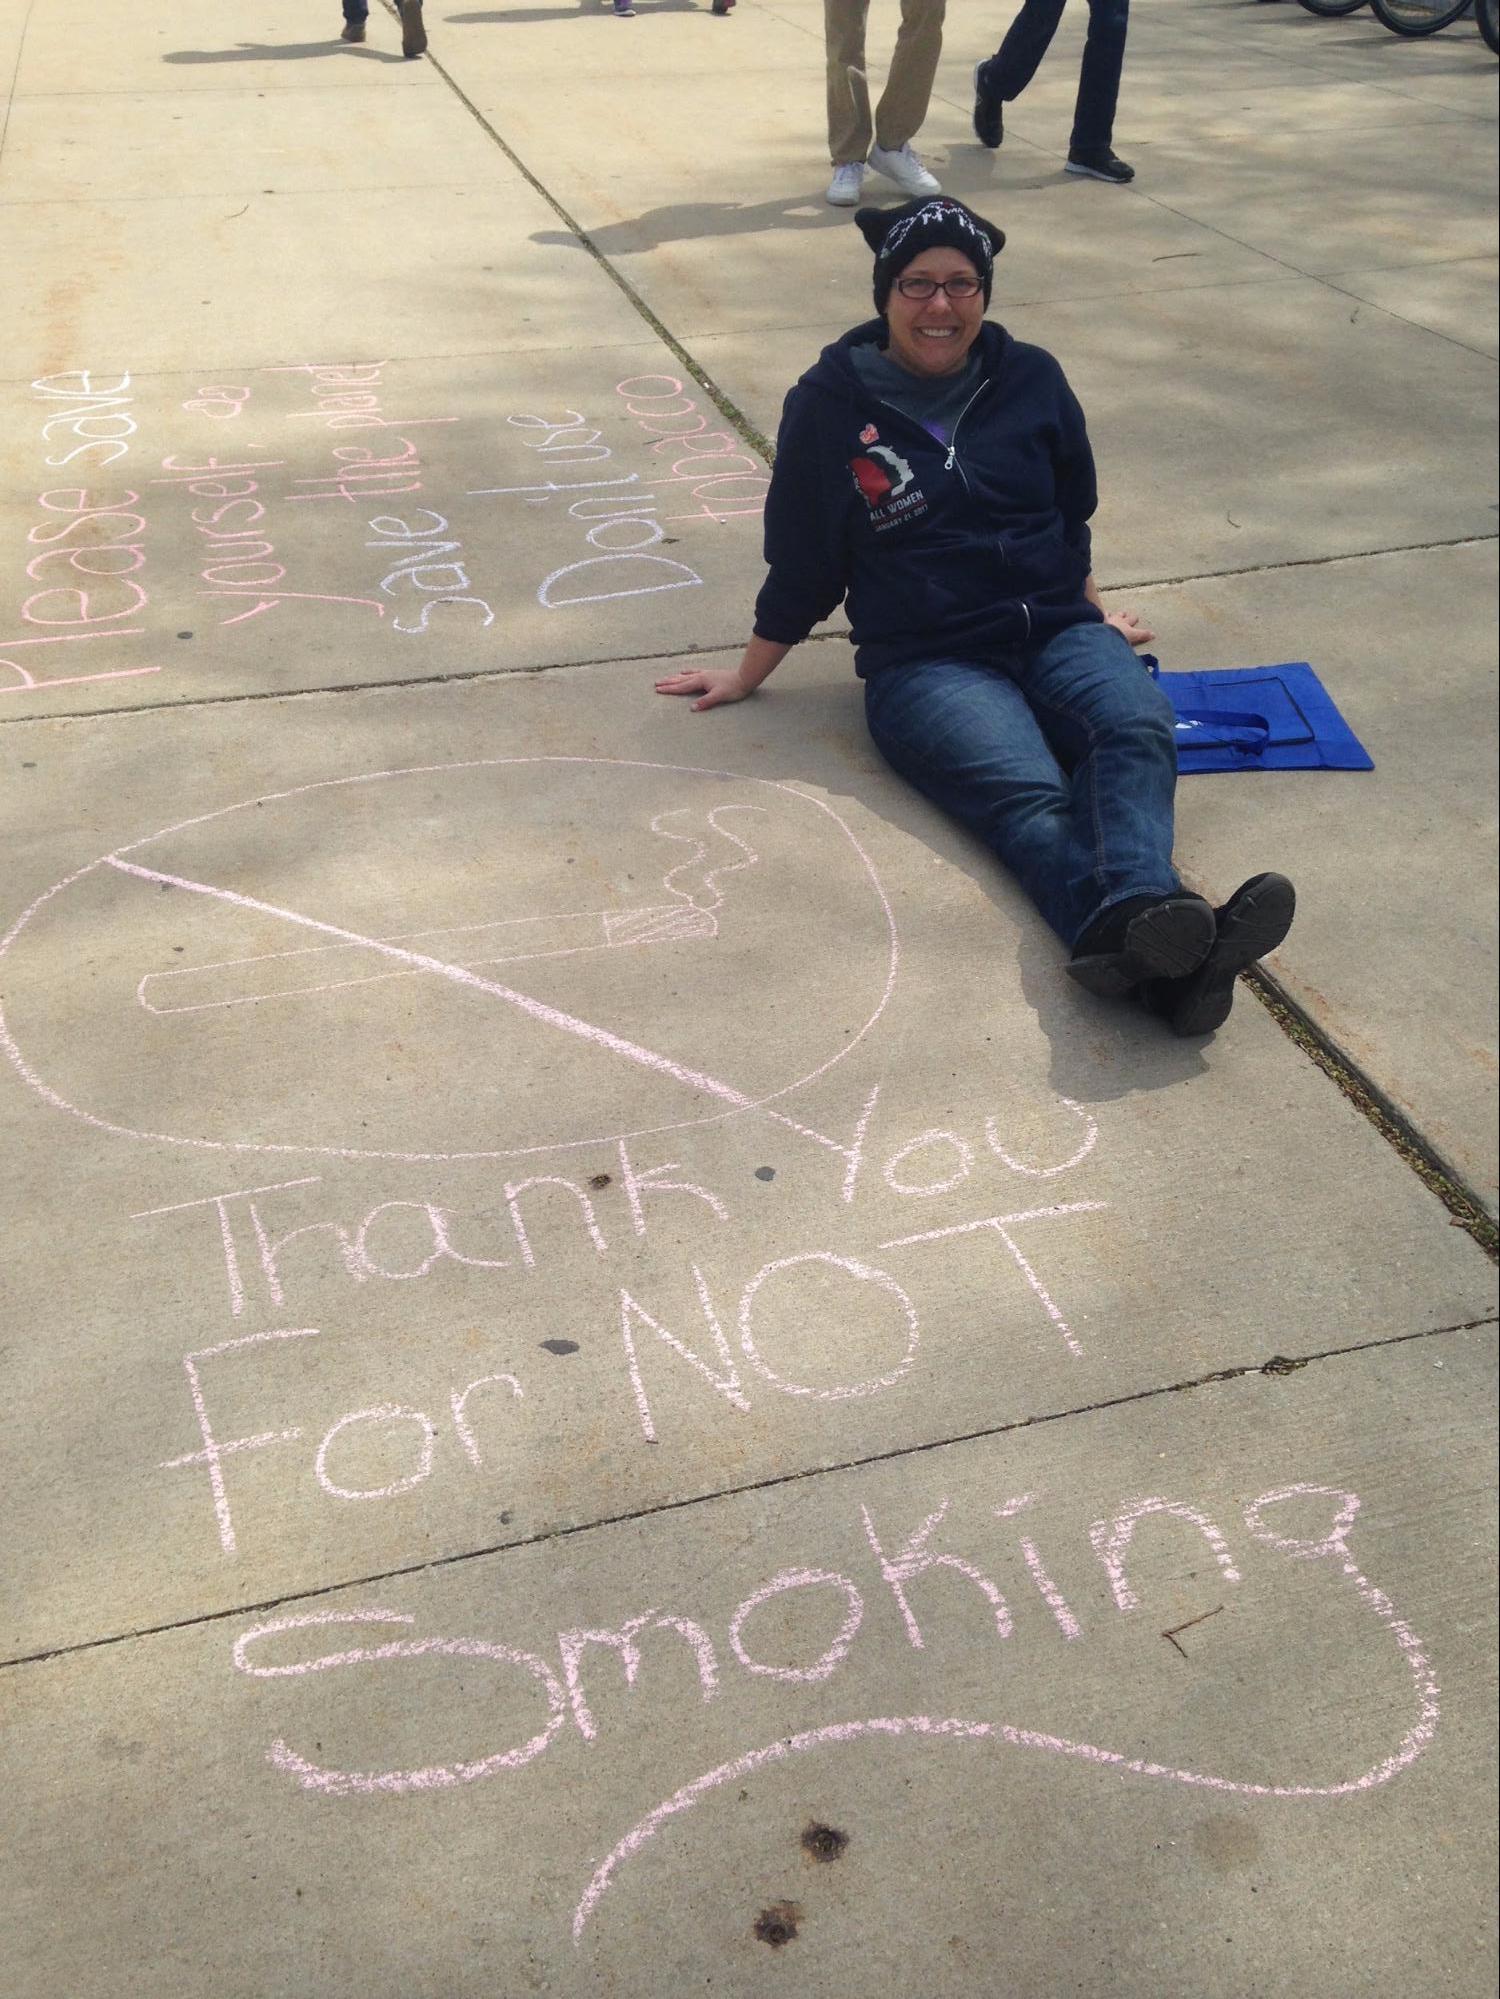 Please save
yourself, &
save the planet
Don't use
tobacco
ALL WOMEN
JANUARY 21, 2017
Thank You
For NOT
Smoking